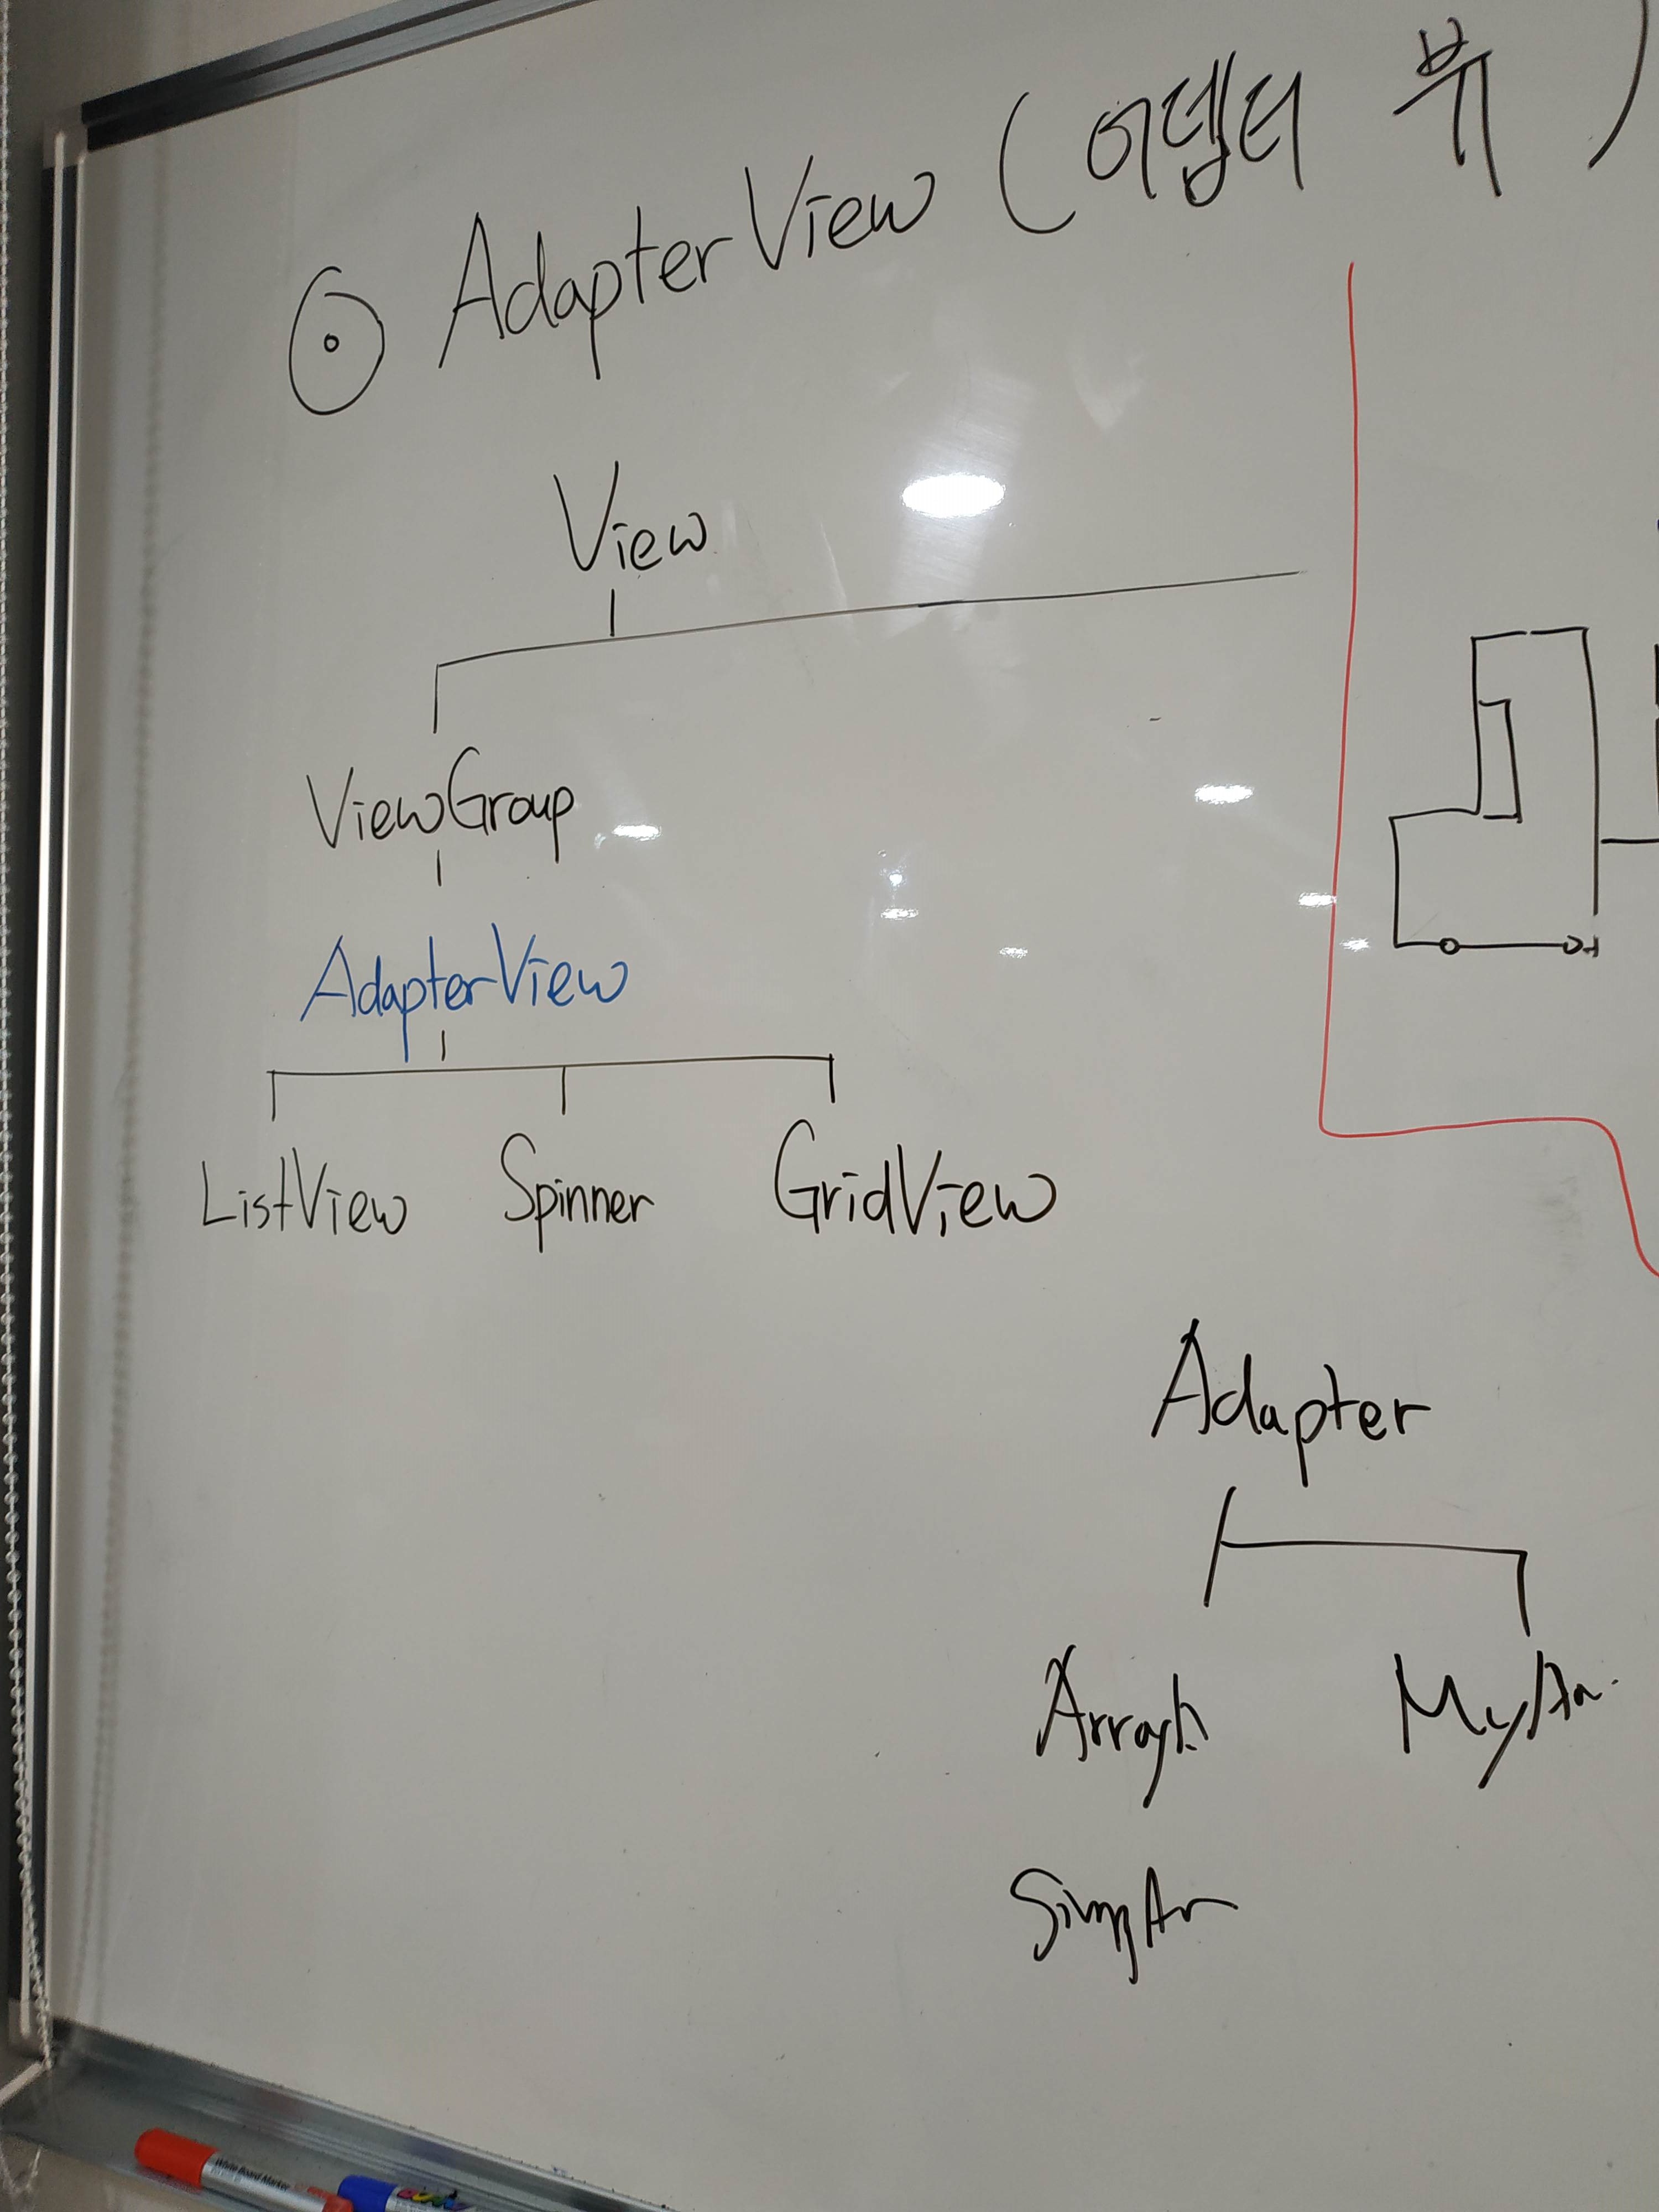 AdapterView (어댑터 뷰)
View
ViewGroup
AdapterView
ListView Spinner GridView
Adapter
White Board Marker